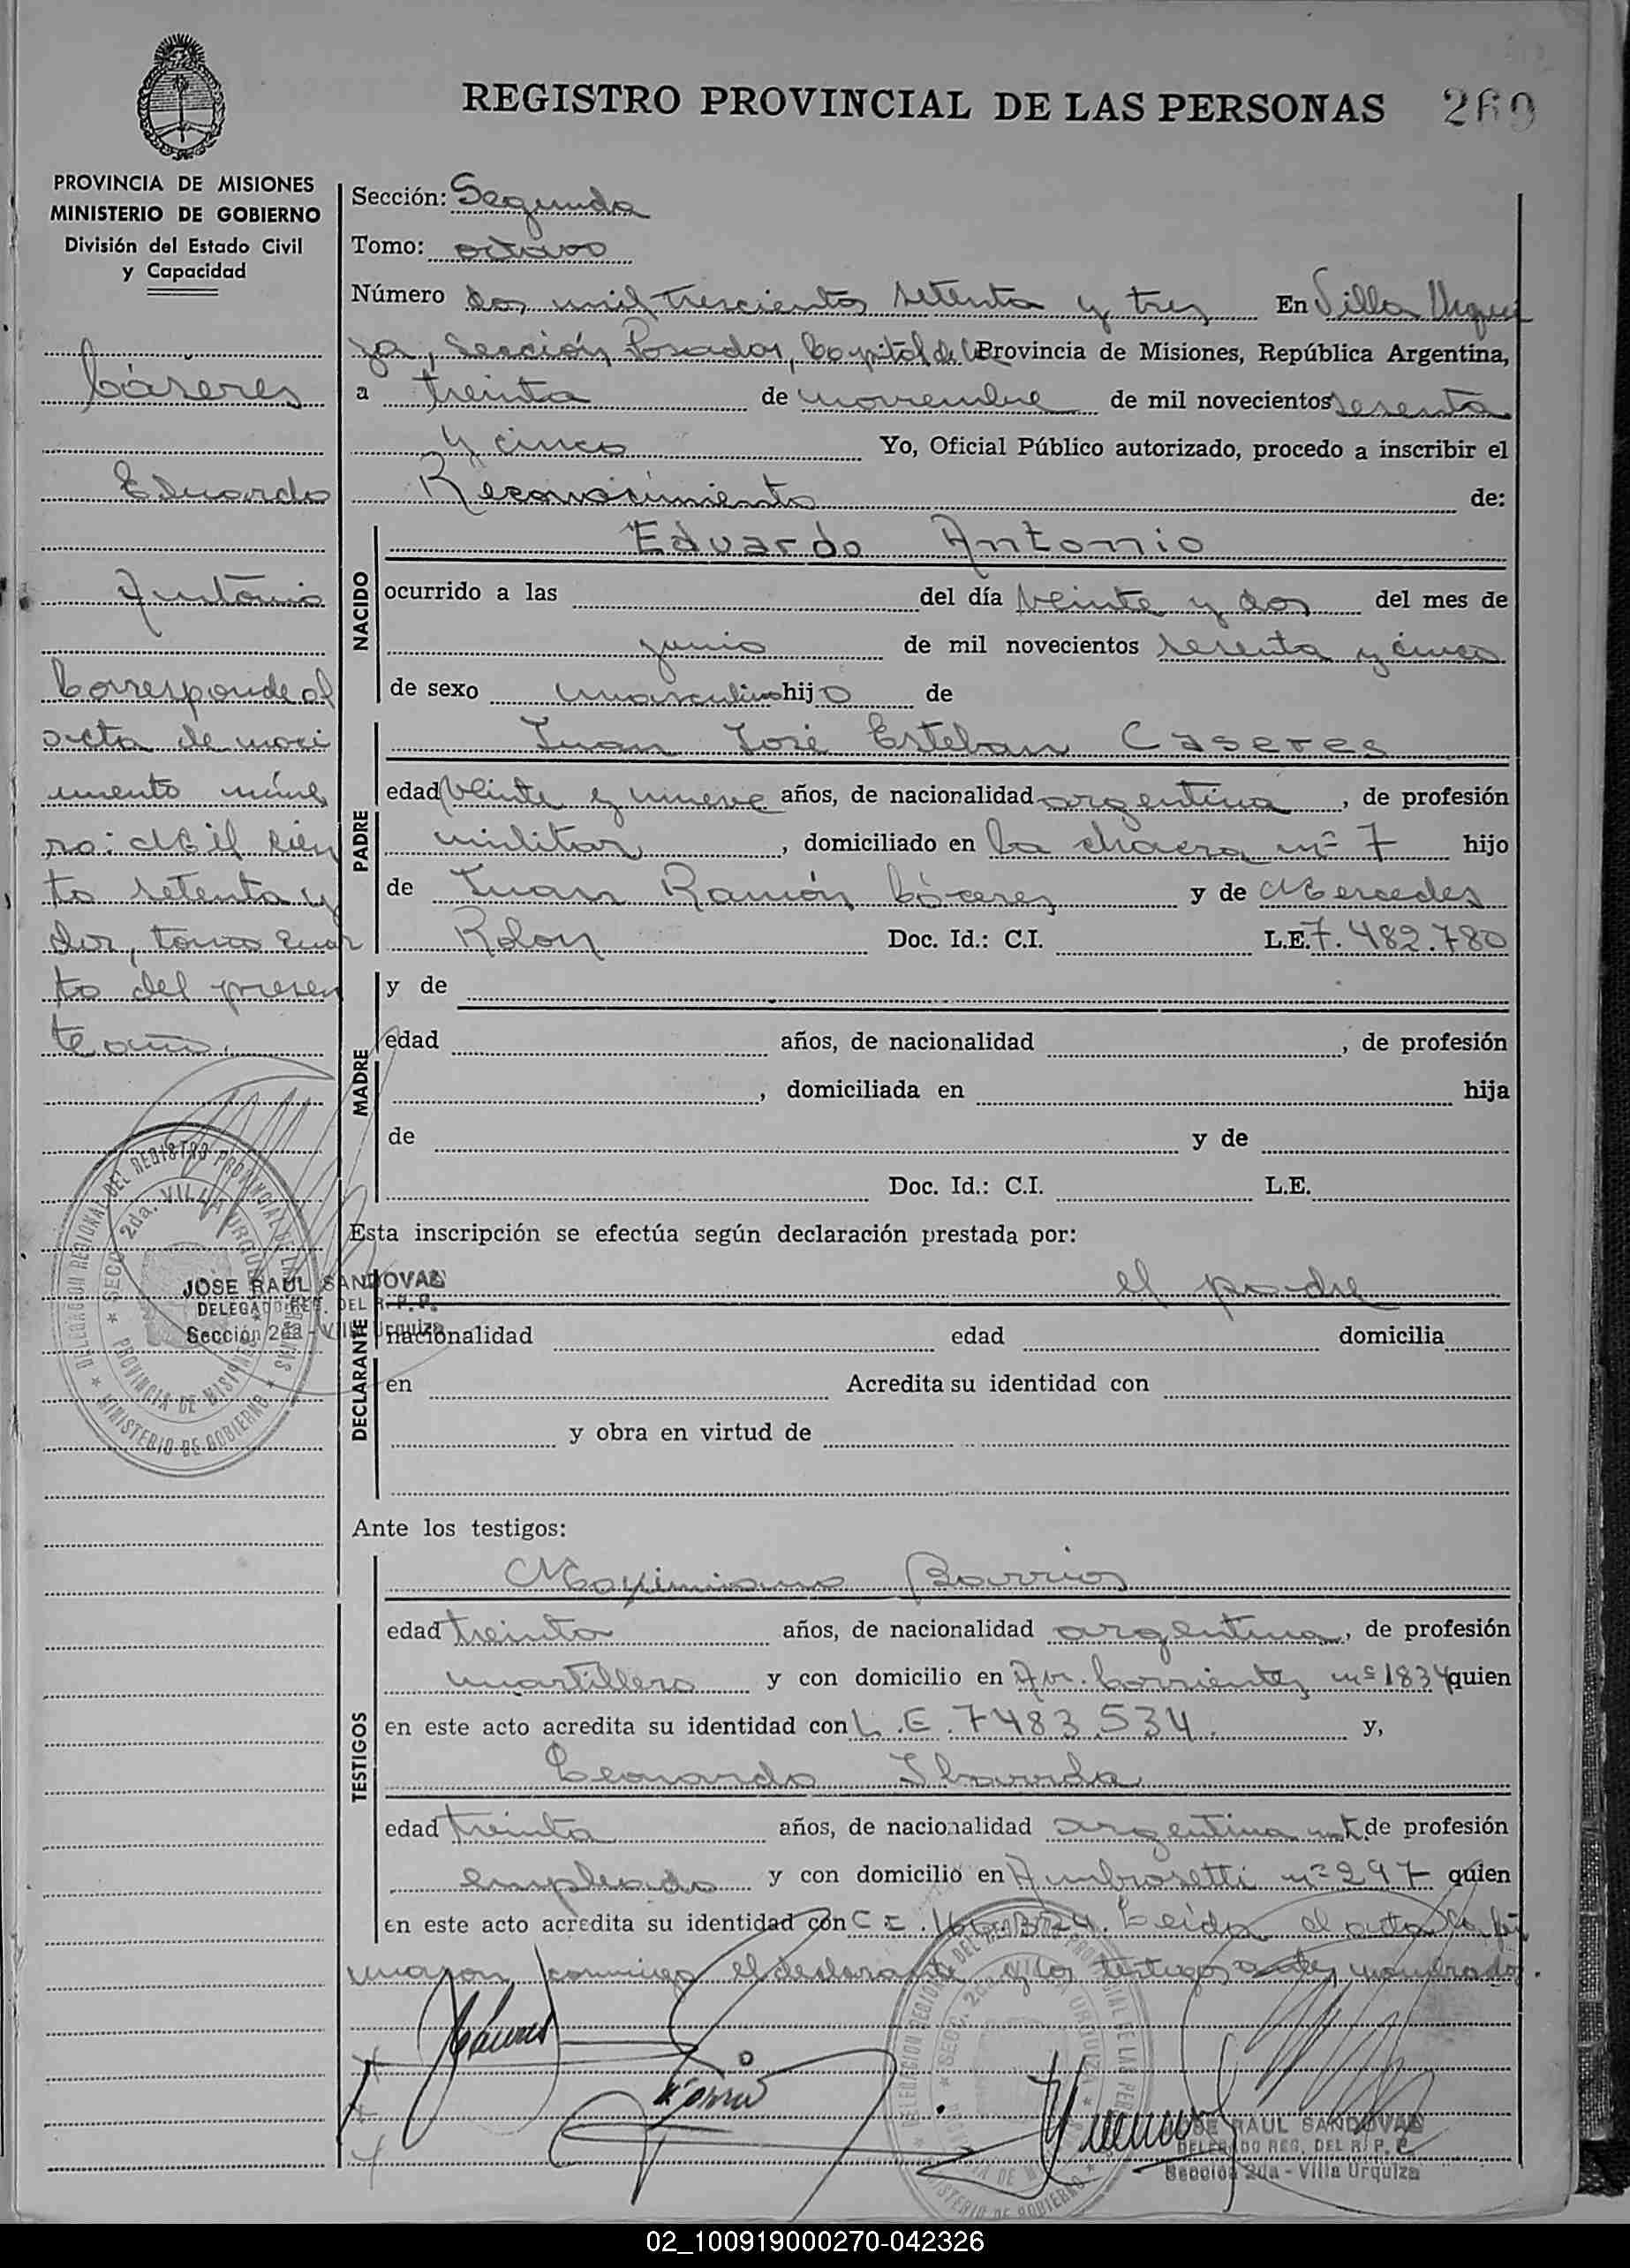 REGISTRO PROVINCIAL DE LAS PERSONAS 269
PROVINCIA DE MISIONES
MINISTERIO DE GOBIERNO
División del Estado Civil
y Capacidad
Cáseres
Eduardo
Antonio
Corresponde al
acta de naci
miento núme
ro: Mil cien
to setenta y
dos, tomo cuar
to del presen
te año.
DELEGACION REGIONAL DEL REGISTRO PROVINCIAL DE LAS PERSONAS
SECC. 2da. VILLA URQUIZA
PROVINCIA DE MISIONES
MINISTERIO DE GOBIERNO
JOSE RAUL SANDOVAL
DELEGADO REG. DEL R. P. P.
Sección 2da - Villa Urquiza
Sección: Segunda
Tomo: octavo
Número dos mil trescientos setenta y tres En Villa Urqui
za, Sección Posadas, Capital de la Provincia de Misiones, República Argentina,
a treinta de noviembre de mil novecientos sesenta
y cinco Yo, Oficial Público autorizado, procedo a inscribir el
Reconocimiento de:
NACIDO
Eduardo Antonio
ocurrido a las del día veinte y dos del mes de
junio de mil novecientos sesenta y cinco
de sexo masculino hijo de
PADRE
Juan José Esteban Caseres
edad veinte y nueve años, de nacionalidad argentina, de profesión
militar, domiciliado en la chacra nº 7 hijo
de Juan Ramón Cáceres y de Mercedes
Rolon Doc. Id.: C.I. L.E. 7.482.780
MADRE
y de
edad años, de nacionalidad , de profesión
, domiciliada en hija
de y de
Doc. Id.: C.I. L.E.
Esta inscripción se efectúa según declaración prestada por:
DECLARANTE
el padre
nacionalidad edad domicilia
en Acredita su identidad con
y obra en virtud de
Ante los testigos:
TESTIGOS
Maximiano Barrios
edad treinta años, de nacionalidad argentina, de profesión
martillero y con domicilio en Av. Corrientes nº 1834 quien
en este acto acredita su identidad con L.E. 7483.534. y,
Leonardo Ibarrda
edad treinta años, de nacionalidad argentina de profesión
empleado y con domicilio en Ambrosetti nº 297 quien
en este acto acredita su identidad con Leida el acta la fir
maron conmigo el declarante y los testigos antes nombrados.
DELEGACION REGIONAL DEL REGISTRO PROVINCIAL DE LAS PERSONAS
SECC. 2da. VILLA URQUIZA
PROVINCIA DE MISIONES
MINISTERIO DE GOBIERNO
JOSE RAUL SANDOVAL
DELEGADO REG. DEL R. P. P.
Sección 2da - Villa Urquiza
02_100919000270-042326